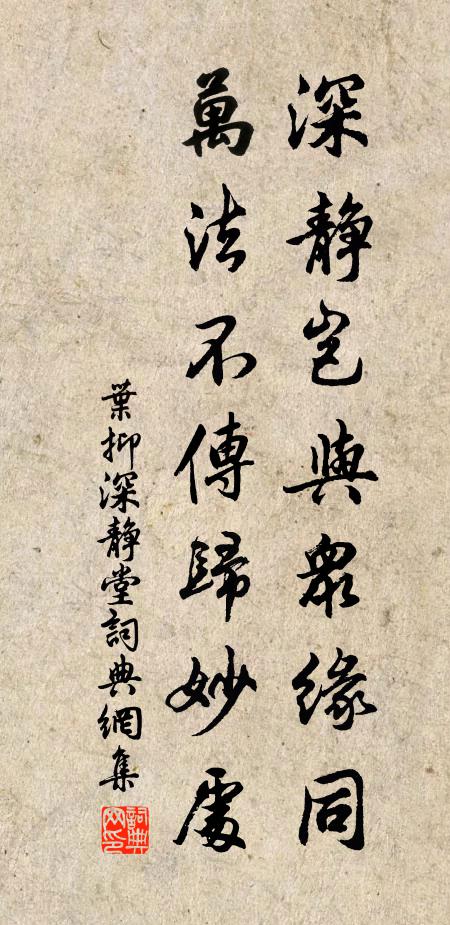 深靜豈與衆緣同
萬法不傳歸妙處
葉抑深靜堂詞典網集
詞典网印